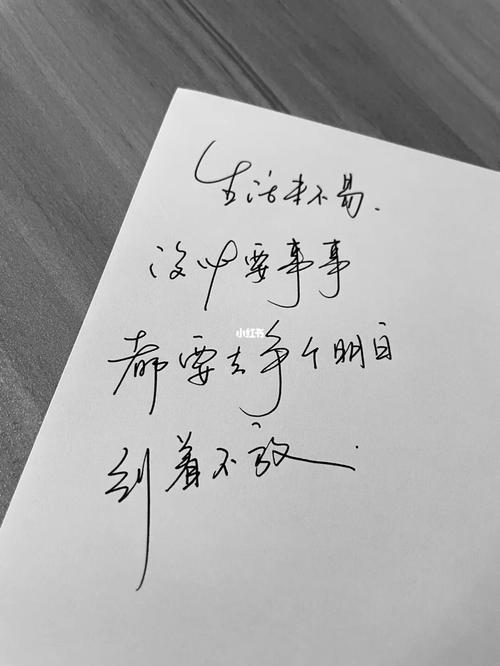 生活本不易.
没必要事事
小红书
都要去争个明白
纠着不放.